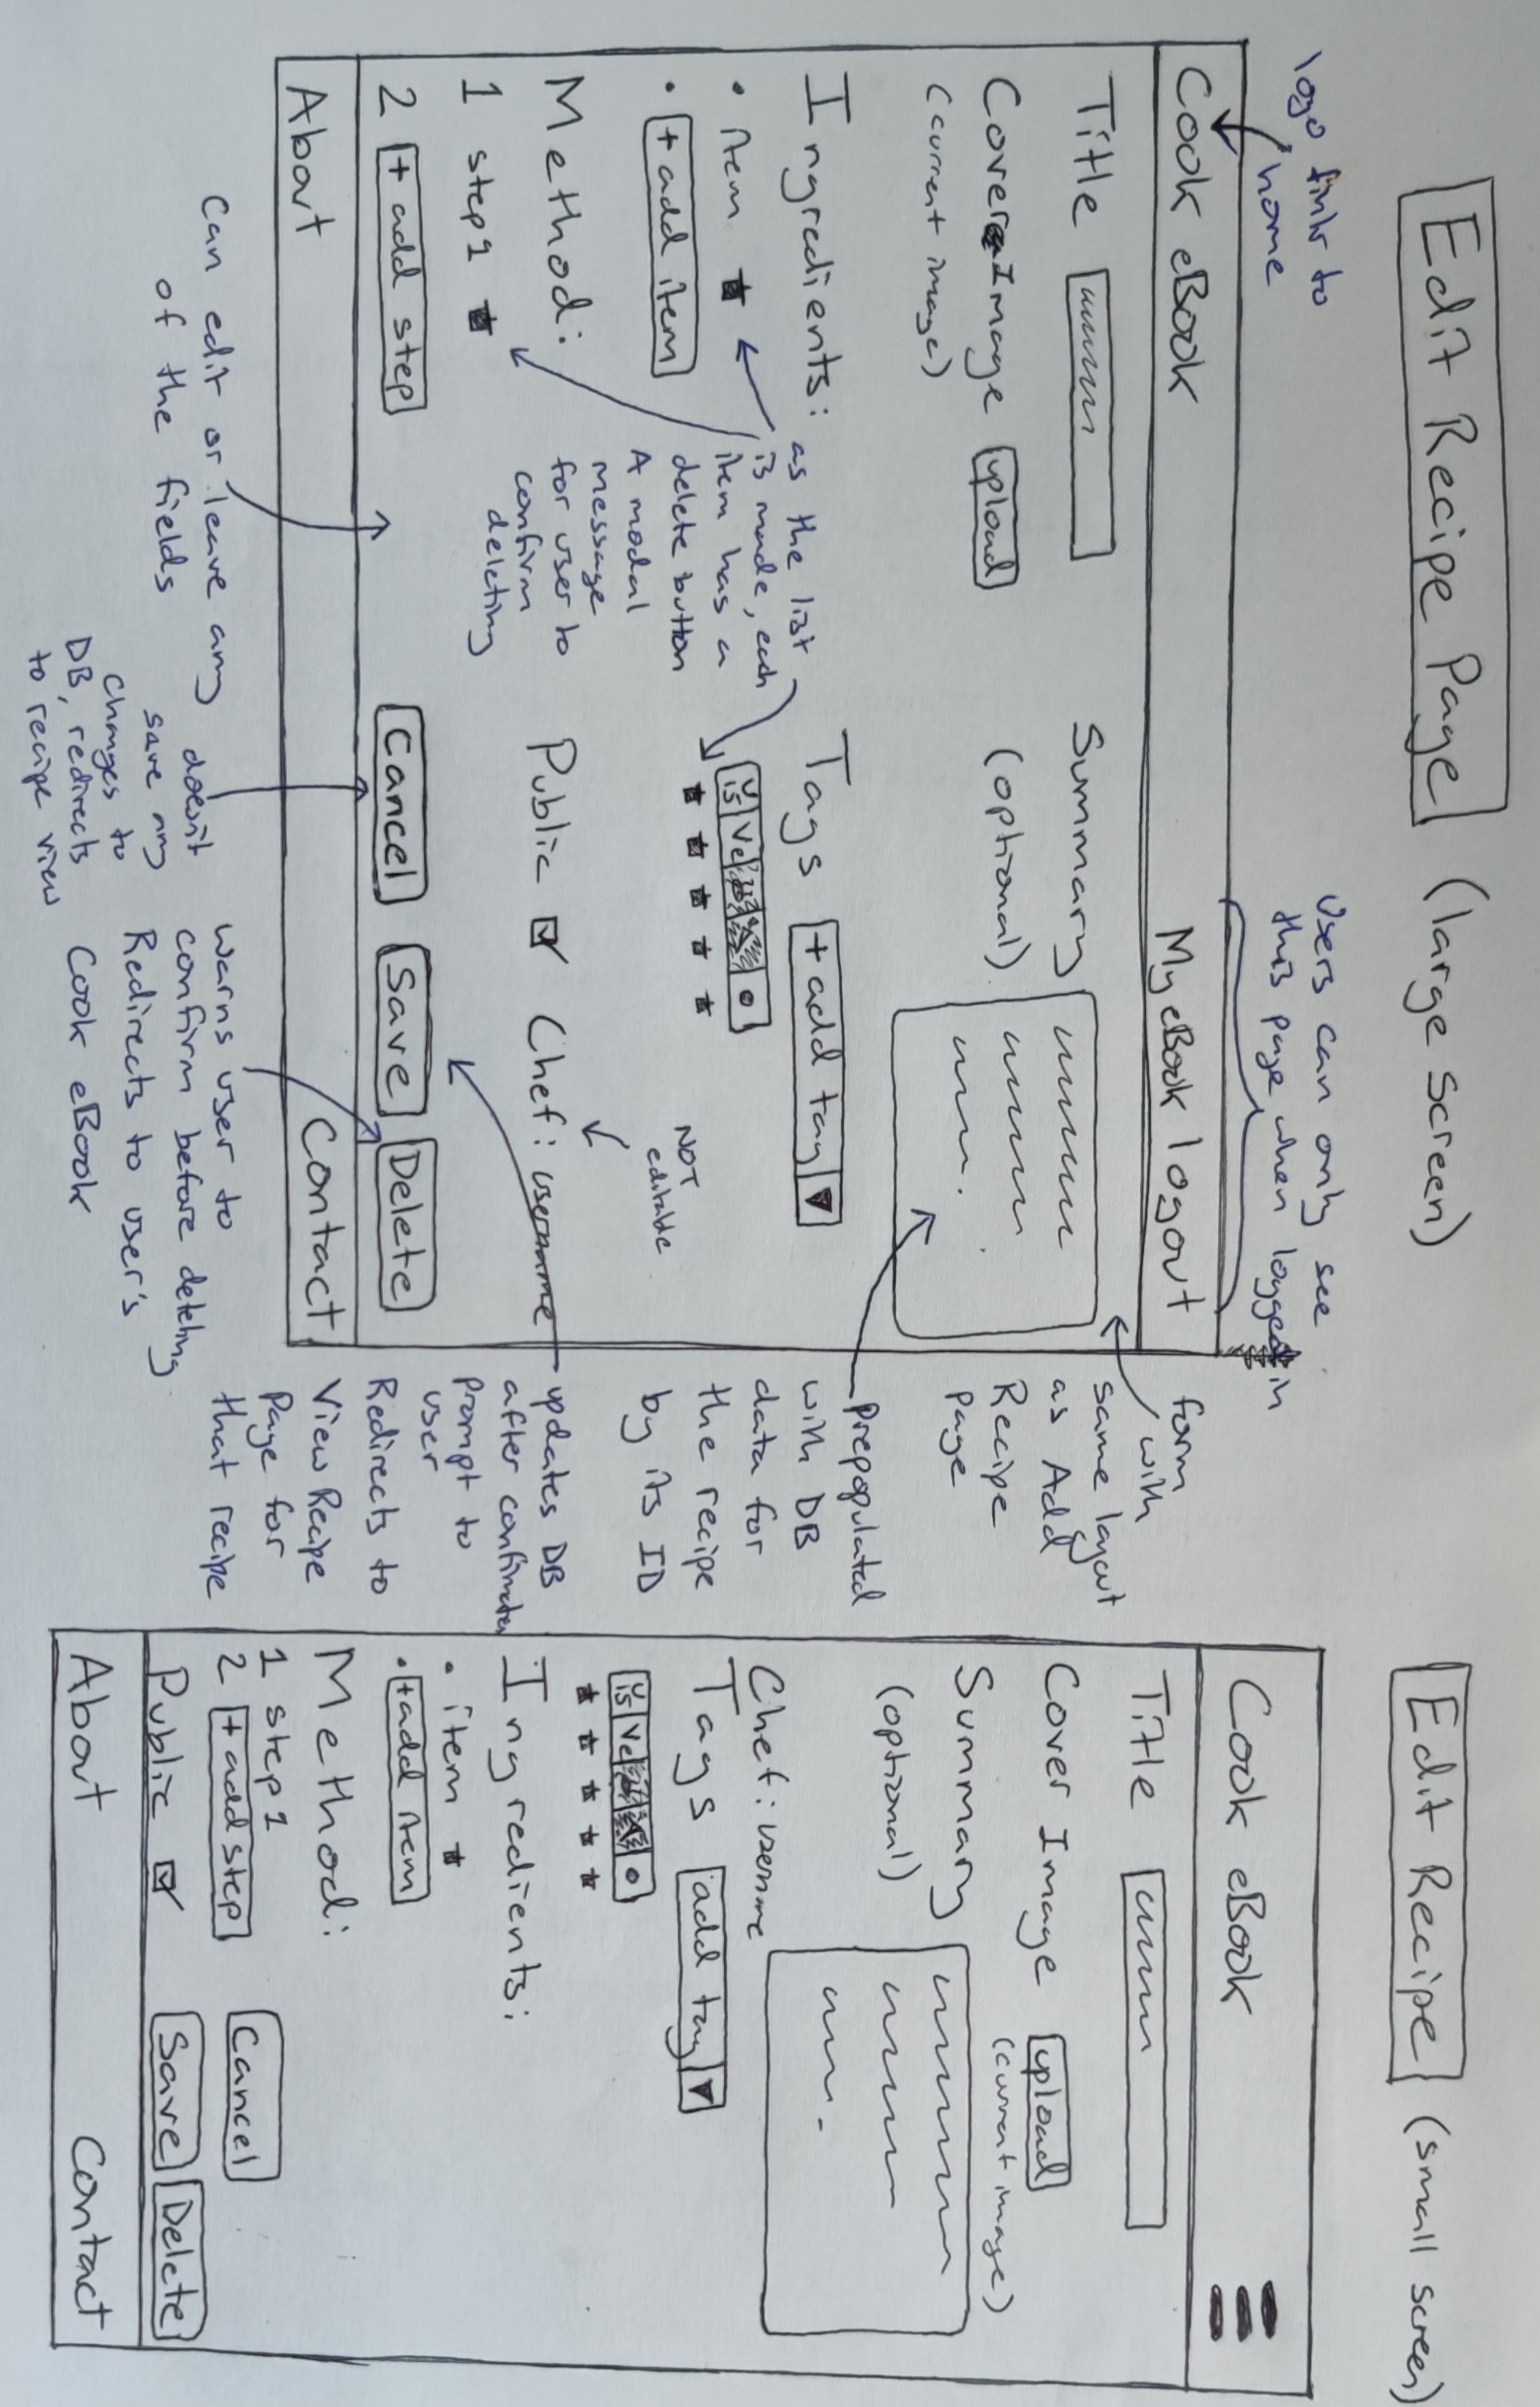 Edit Recipe Page (large screen)
logo links to
home
Users can only see
this page when logged in
Cook eBook
My eBook logout
Title
Cover Image upload
(current image)
Summary
(optional)
form
with
same layout
as Add
Recipe
Page
Prepopulated
with DB
data for
the recipe
by its ID
Ingredients:
• item
• + add item
as the list
is made, each
item has a
delete button
A modal
message
for user to
confirm
deleting
Tags + add tag
V
is Ve
NOT
editable
Method:
1 step 1
2 + add step
Public Chef: username
updates DB
after
Prompt to
user
Redirects to
View Recipe
Page for
that recipe
Cancel Save Delete
About Contact
Can edit or leave any
of the fields
doesn't
save any
changes to
DB, redirects
to recipe view
Warns user to
confirm before deleting
Redirects to user's
Cook eBook
Edit Recipe (small screen)
Cook eBook
Title
Cover Image upload
(current image)
Summary
(optional)
Chef: username
Tags add tag
V
is Ve
Ingredients:
• item
• + add item
Method:
1 step 1
2 + add step
Cancel
Public Save Delete
About Contact